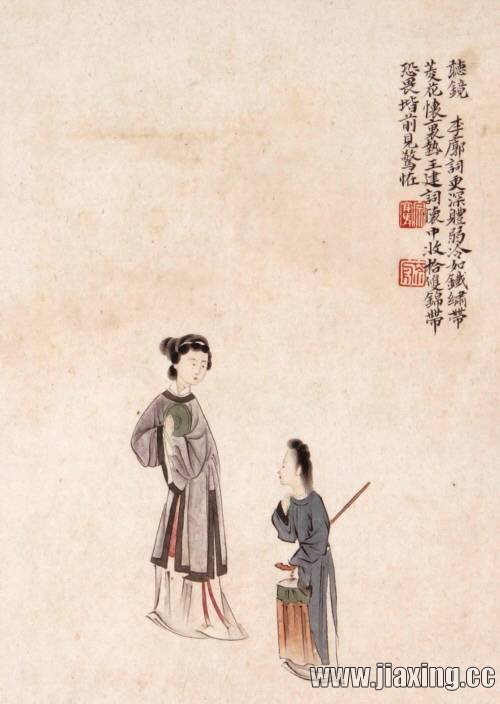 聽鏡 李廓詞更深體弱冷如鐵繡帶
菱花懷裏熱王建詞懷中收拾雙錦帶
恐畏堦前見驚恠
www.jiaxing.cc